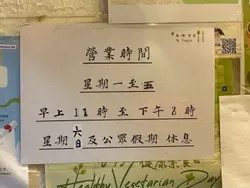 營業時間
星期一至五
早上11時至下午8時
星期六日及公眾假期 休息
Healthy Vegetarian Day